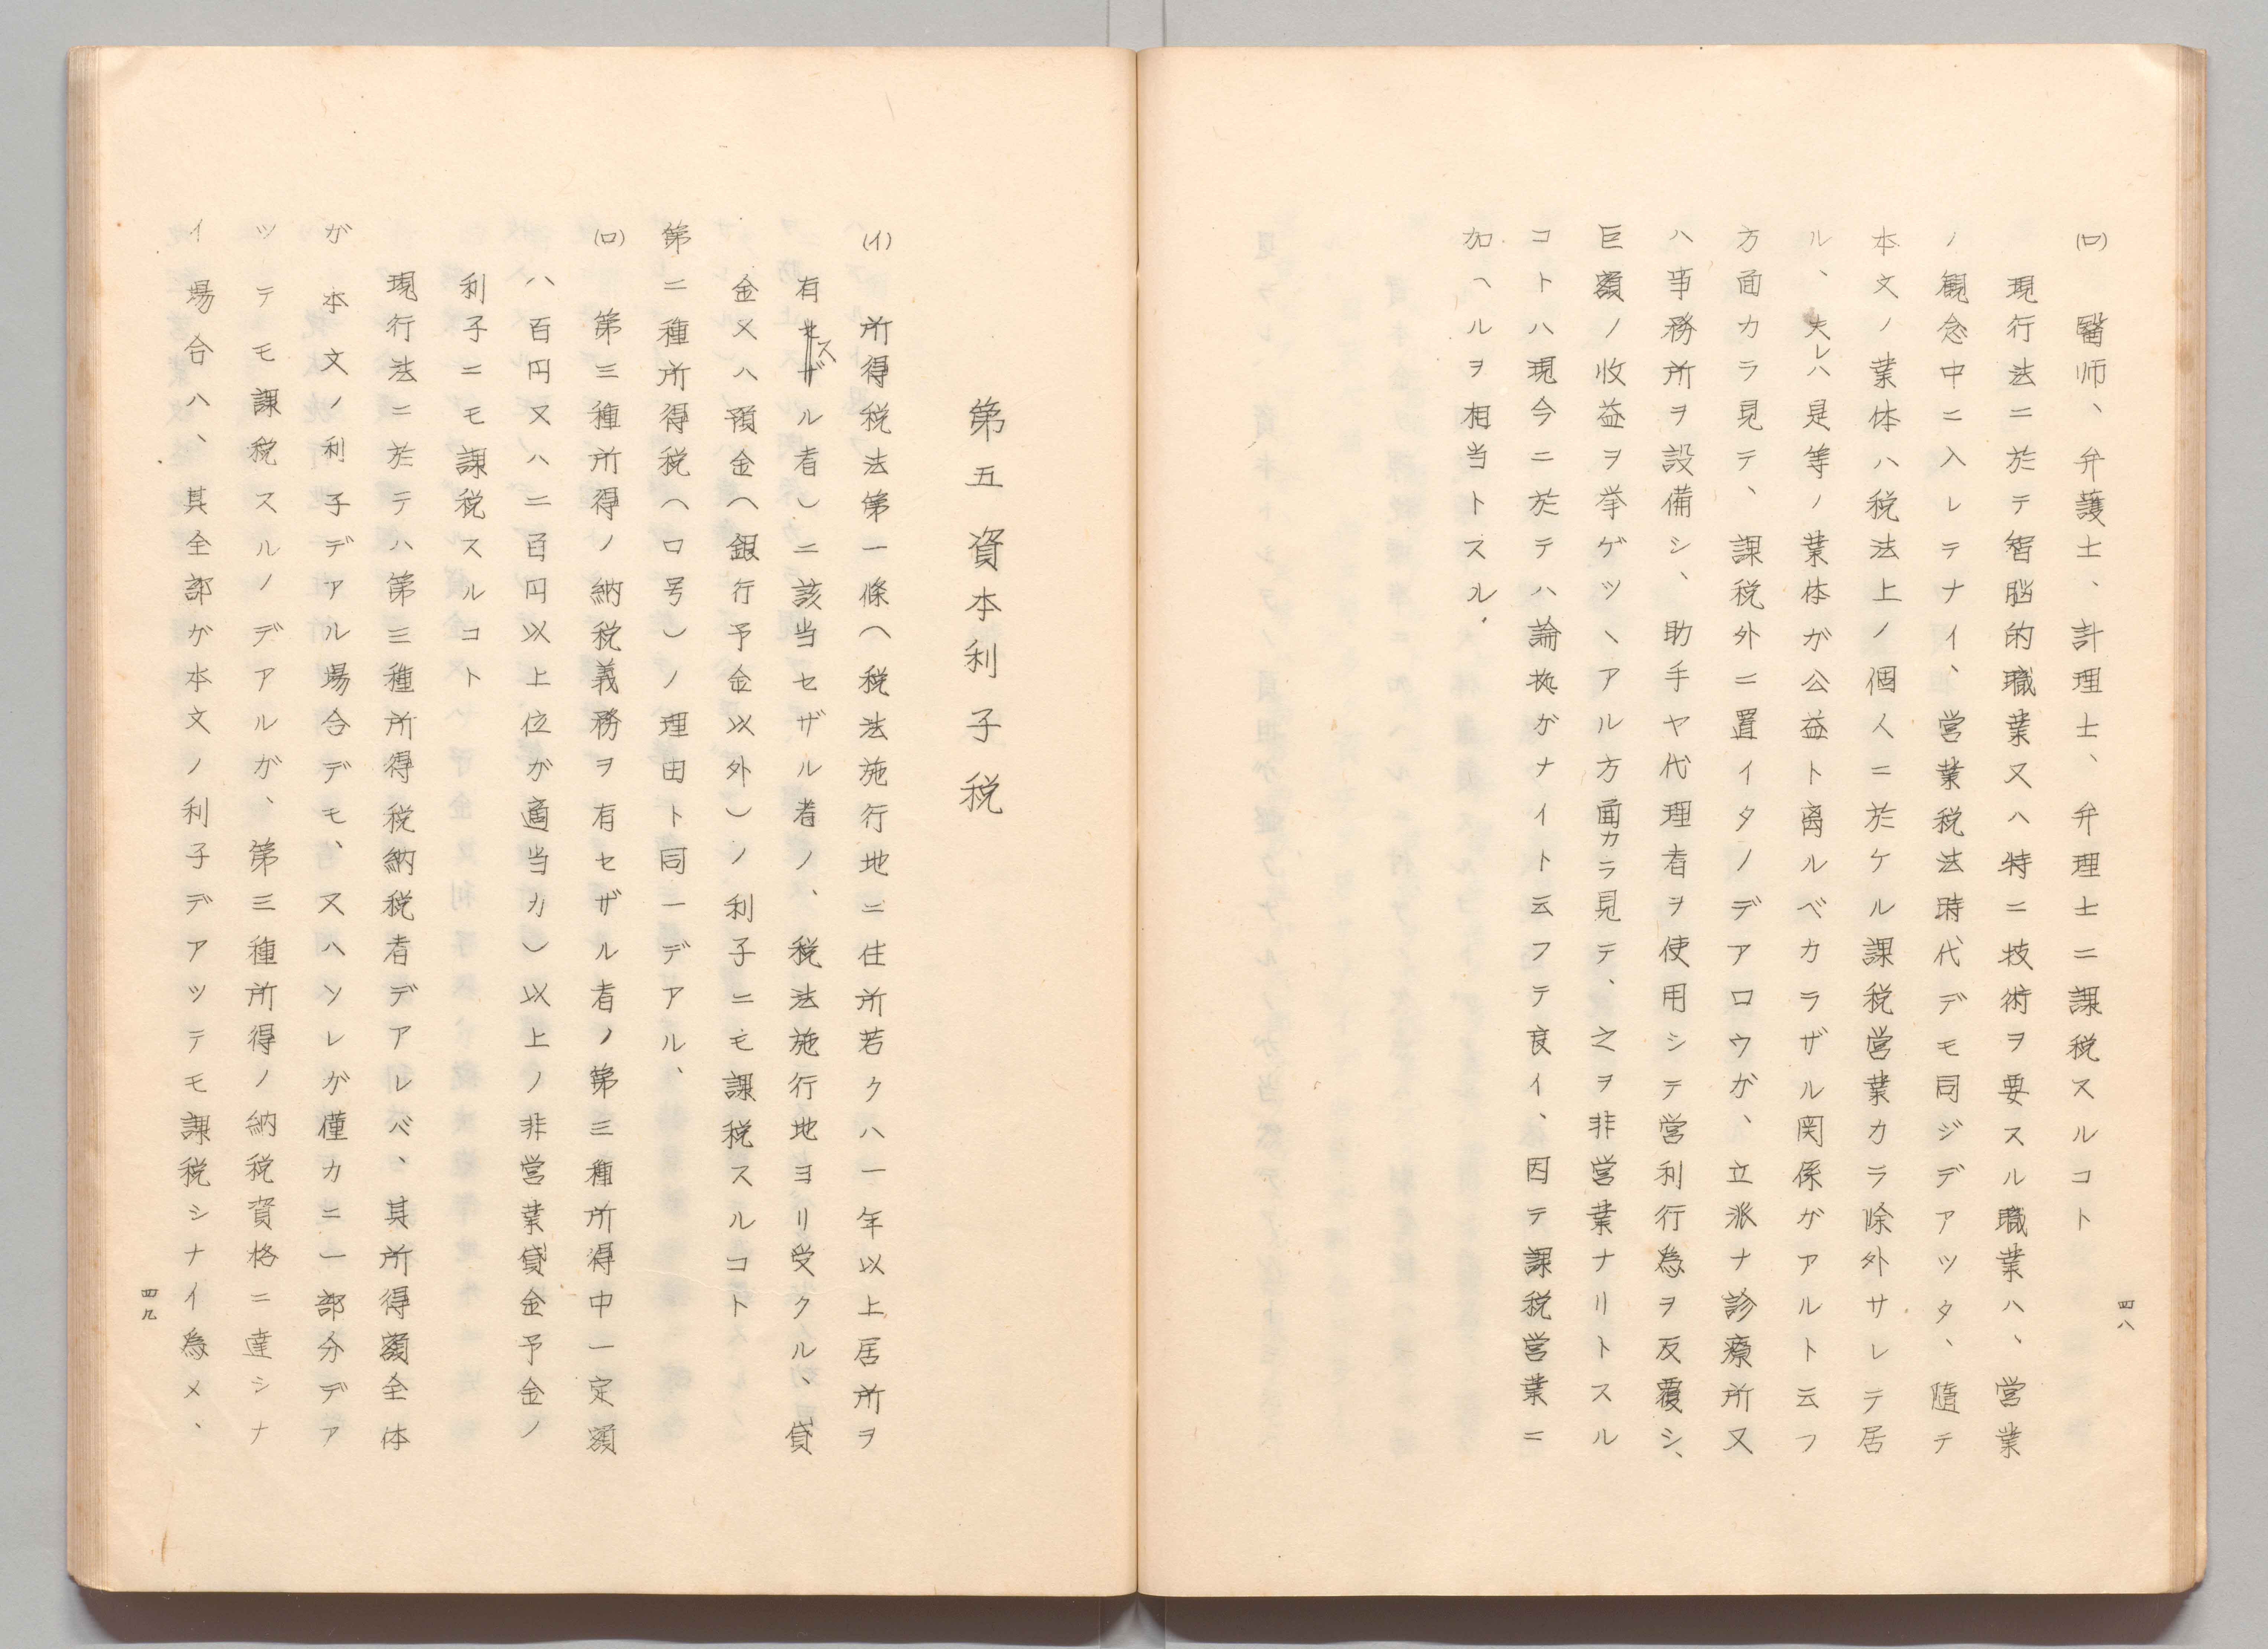 (ロ) 醫師、弁護士、計理士、弁理士ニ課税スルコト
現行法ニ於テ智脳的職業又ハ特ニ技術ヲ要スル職業ハ、営業
ノ観念中ニ入レテナイ、営業税法時代デモ同ジデアツタ、随テ
本文ノ業体ハ税法上ノ個人ニ於ケル課税営業カラ除外サレテ居
ル、夫レハ是等ノ業体ガ公益ト离ルベカラザル関係ガアルト云フ
方面カラ見テ、課税外ニ置イタノデアロウガ、立派ナ診療所又
ハ事務所ヲ設備シ、助手ヤ代理者ヲ使用シテ営利行為ヲ反覆シ、
巨額ノ收益ヲ挙ゲツヽアル方面カラ見テ、之ヲ非営業ナリトスル
コトハ現今ニ於テハ論拠ガナイト云フテ良イ、因テ課税営業ニ
加ヘルヲ相当トスル.
四八
第五 資本利子税
(イ) 所得税法第一條(税法施行地ニ住所若クハ一年以上居所ヲ
有スル者)ニ該当セザル者ノ、税法施行地ヨリ受クル、貸
金又ハ預金(銀行予金以外)ノ利子ニモ課税スルコト
第二種所得税(ロ号)ノ理由ト同一デアル、
(ロ) 第三種所得ノ納税義務ヲ有セザル者ノ第三種所得中一定額
ハ百円又ハ二百円以上位ガ適当カ)以上ノ非営業貸金予金ノ
利子ニモ課税スルコト
現行法ニ於テハ第三種所得税納税者デアレバ、其所得額全体
ガ本文ノ利子デアル場合デモ、又ハソレガ僅カニ一部分デア
ツテモ課税スルノデアルガ、第三種所得ノ納税資格ニ達シナ
イ場合ハ、其全部ガ本文ノ利子デアツテモ課税シナイ為メ、
四九